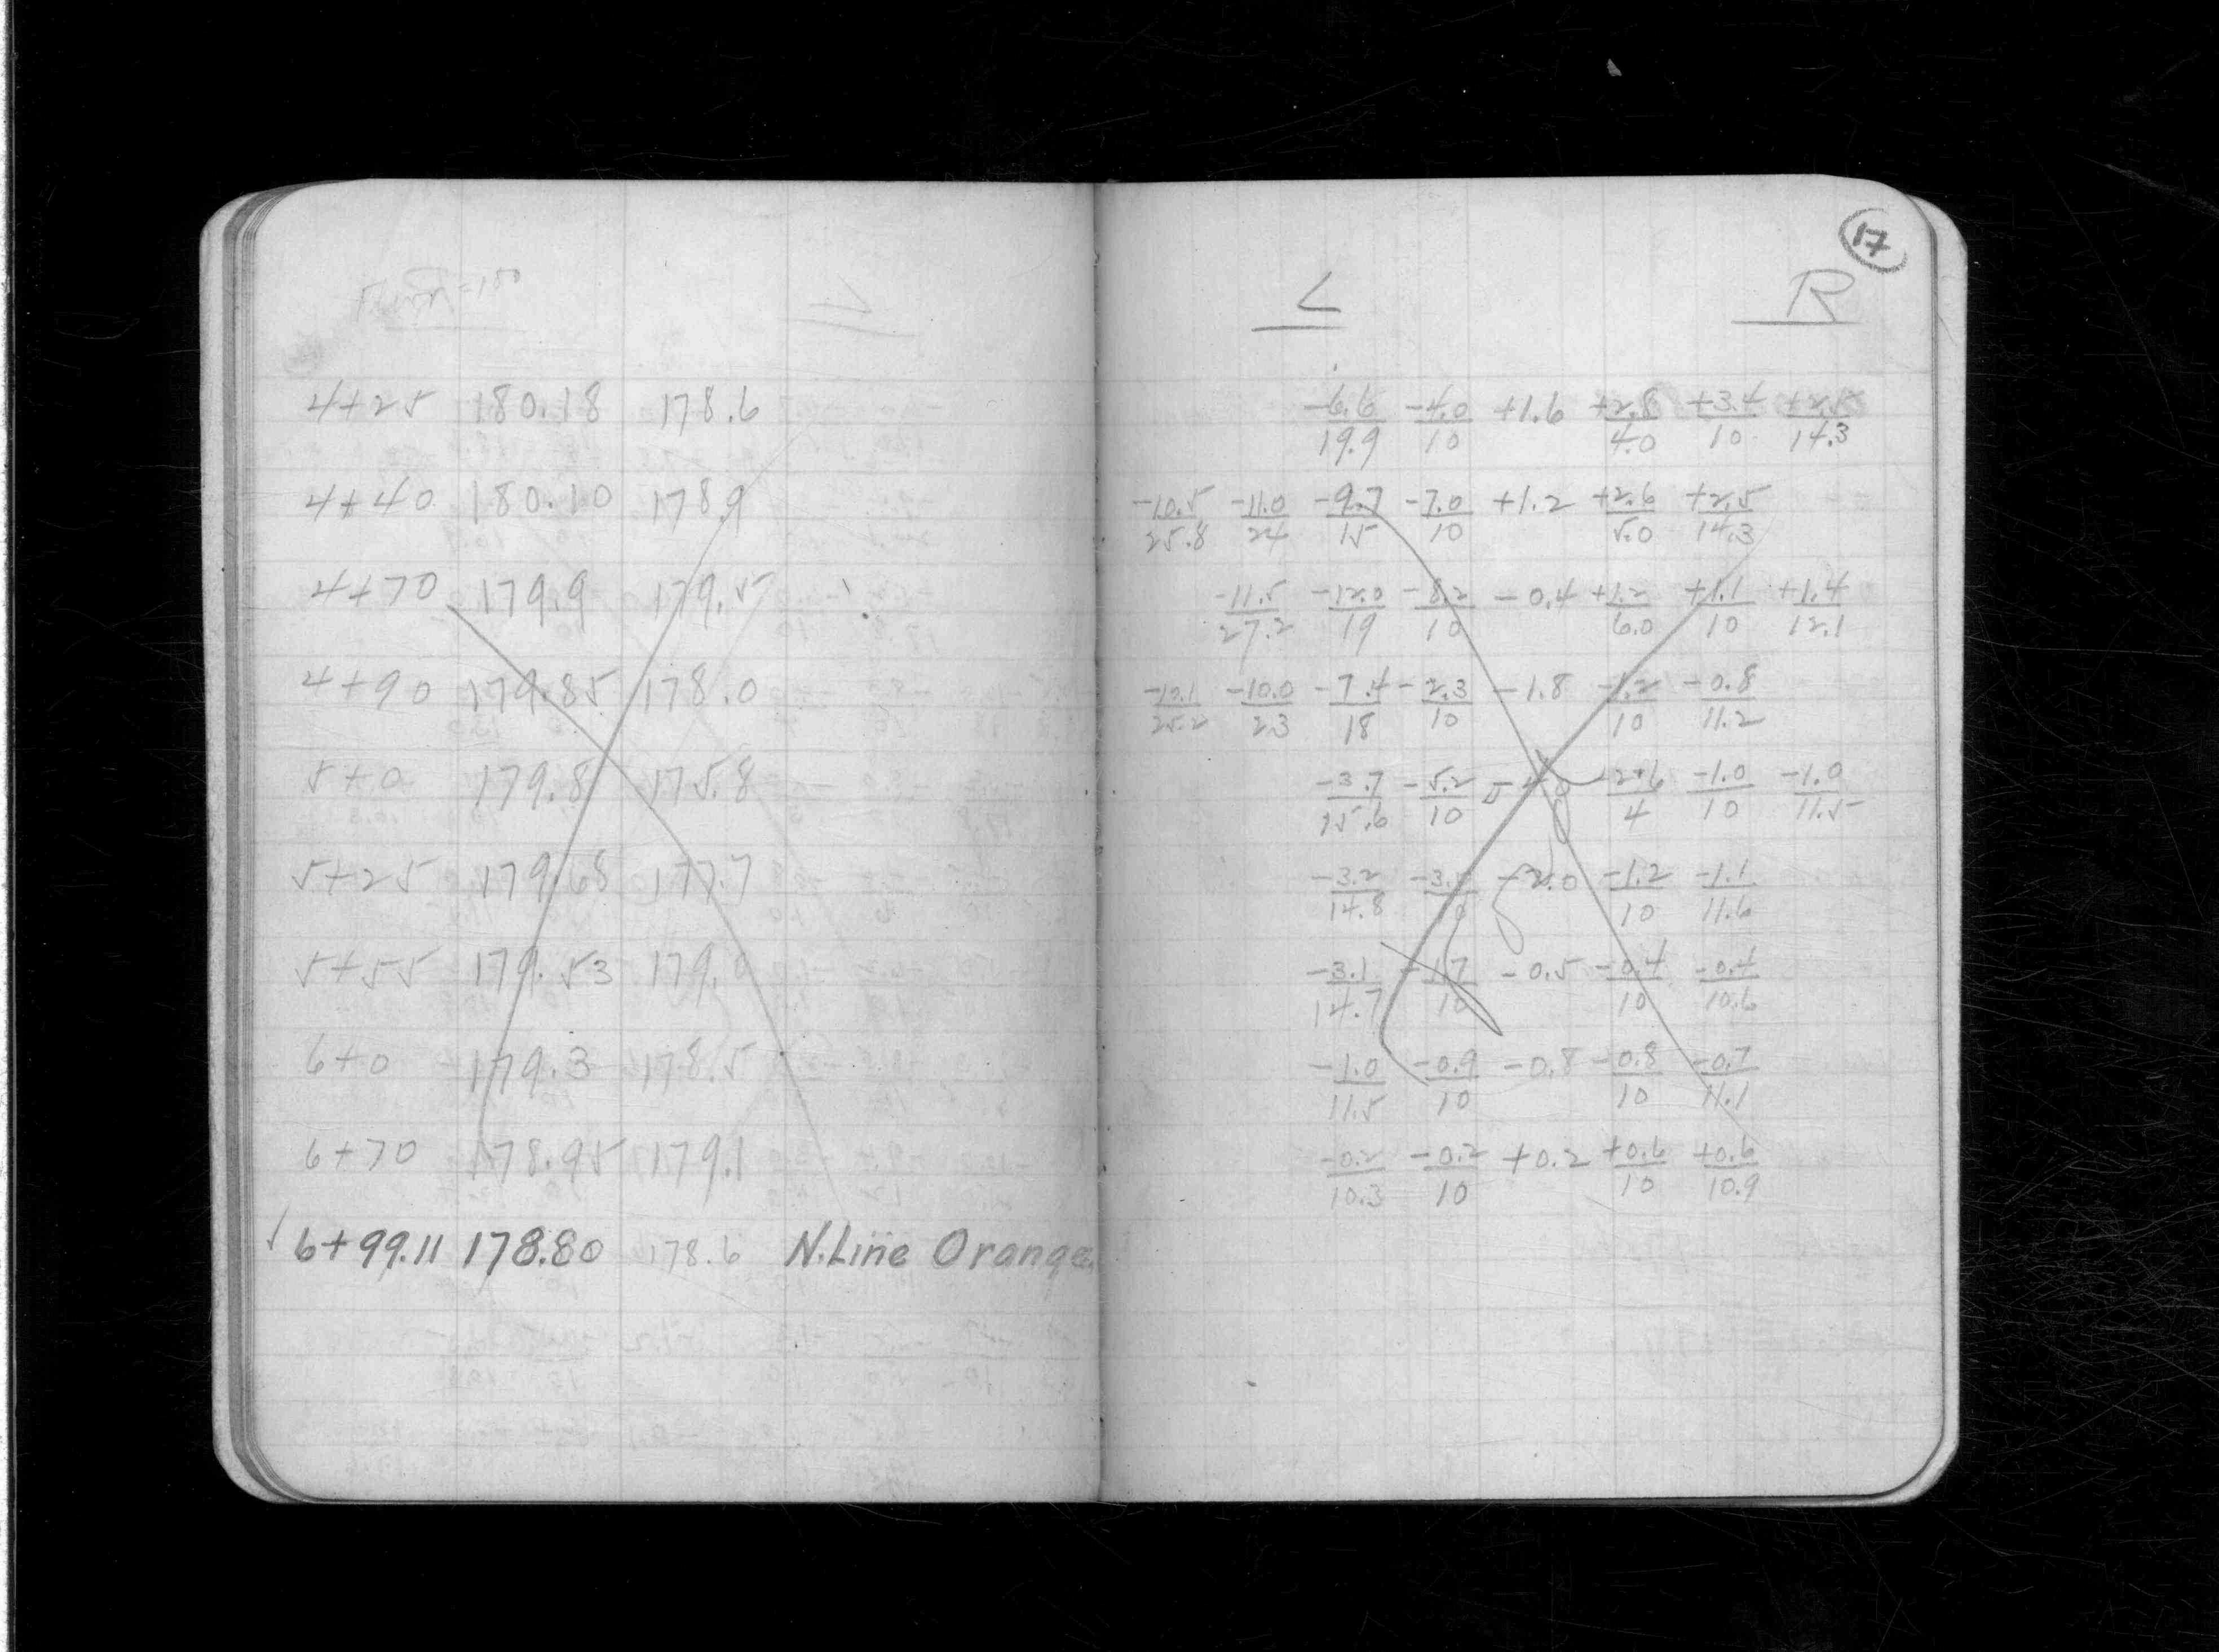 17
L R
4+25 180.18 178.6 -6.6/19.9 -4.0/10 +1.6 +2.8/4.0 +3.4/10 +2.5/14.3
4+40 180.10 178.9 -10.5/25.8 -11.0/24 -9.7/15 -7.0/10 +1.2 +2.6/5.0 +2.5/14.3
4+70 179.9 179.5 -11.5/27.2 -12.0/19 -8.2/10 -0.4 +1.2/6.0 +1.1/10 +1.4/12.1
4+90 179.85 178.0 -10.1/25.2 -10.0/23 -7.4/18 -2.3/10 -1.8 -1.2/10 -0.8/11.2
5+0 179.8 175.8 -3.7/15.6 -5.2/10 -2.6/4 -1.0/10 -1.0/11.5
5+25 179.68 177.7 -3.2/14.8 -2.0 -1.2/10 -1.1/11.6
5+55 179.53 179.0 -3.1/14.7 -1.7/10 -0.5 -0.4/10 -0.4/10.6
6+0 179.3 178.5 -1.0/11.5 -0.9/10 -0.8 -0.8/10 -0.7/11.1
6+70 178.95 179.1 -0.2/10.3 -0.2/10 +0.2 +0.6/10 +0.6/10.9
6+99.11 178.80 178.6 N.Line Orange